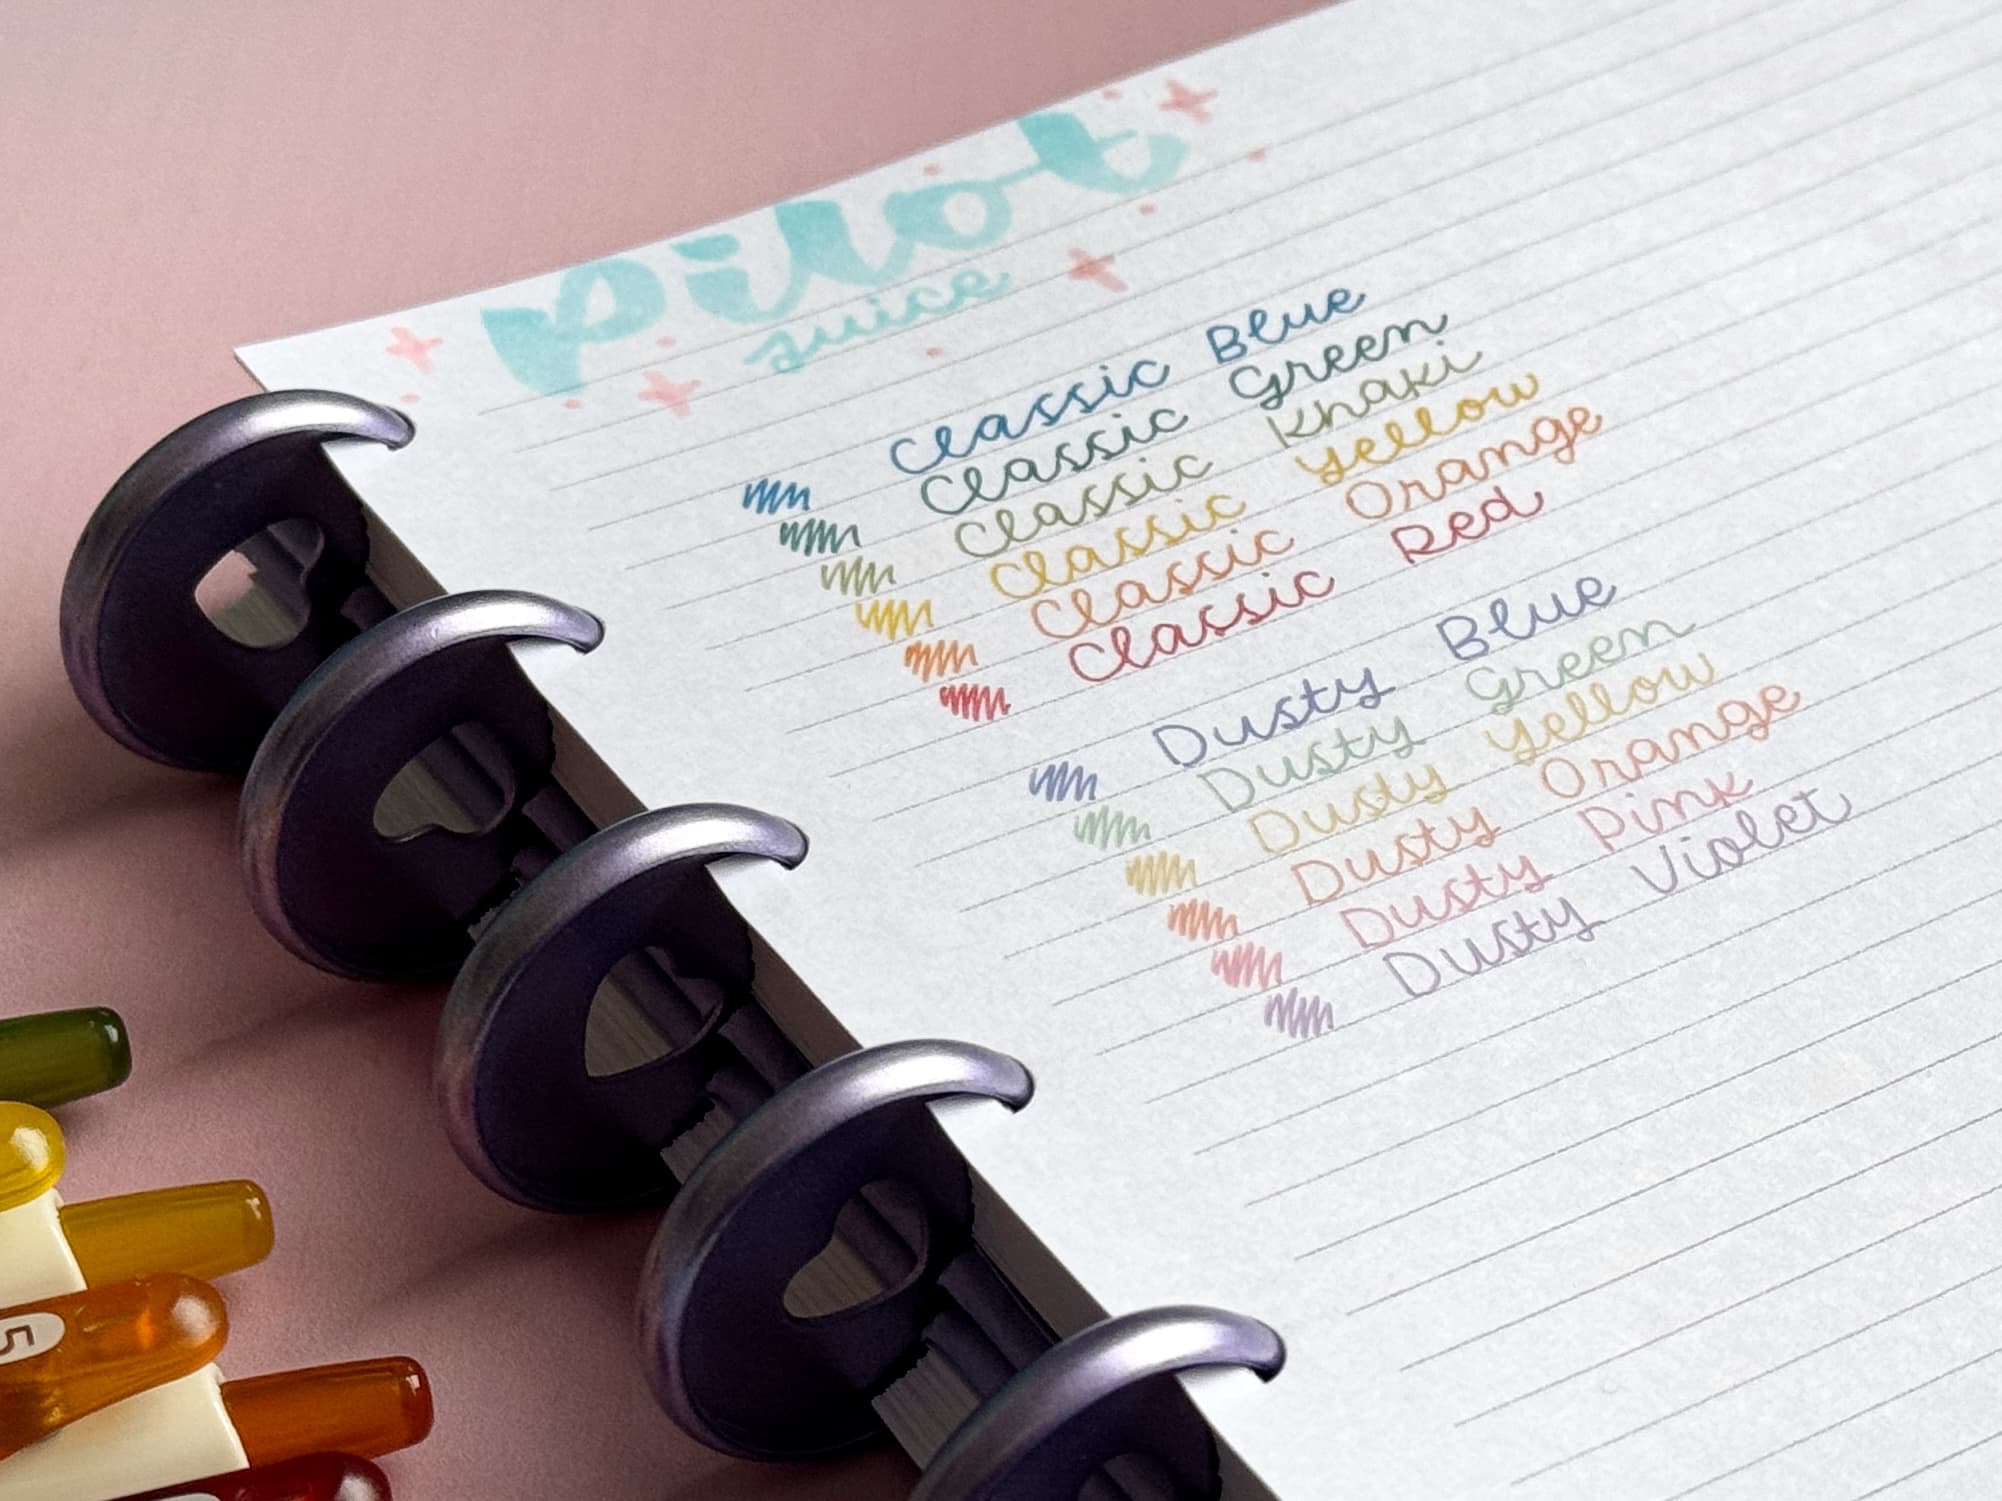 pilot
juice
Classic Blue
Classic Green
Classic Khaki
Classic Yellow
Classic Orange
Classic Red
Dusty Blue
Dusty Green
Dusty Yellow
Dusty Orange
Dusty Pink
Dusty Violet
5